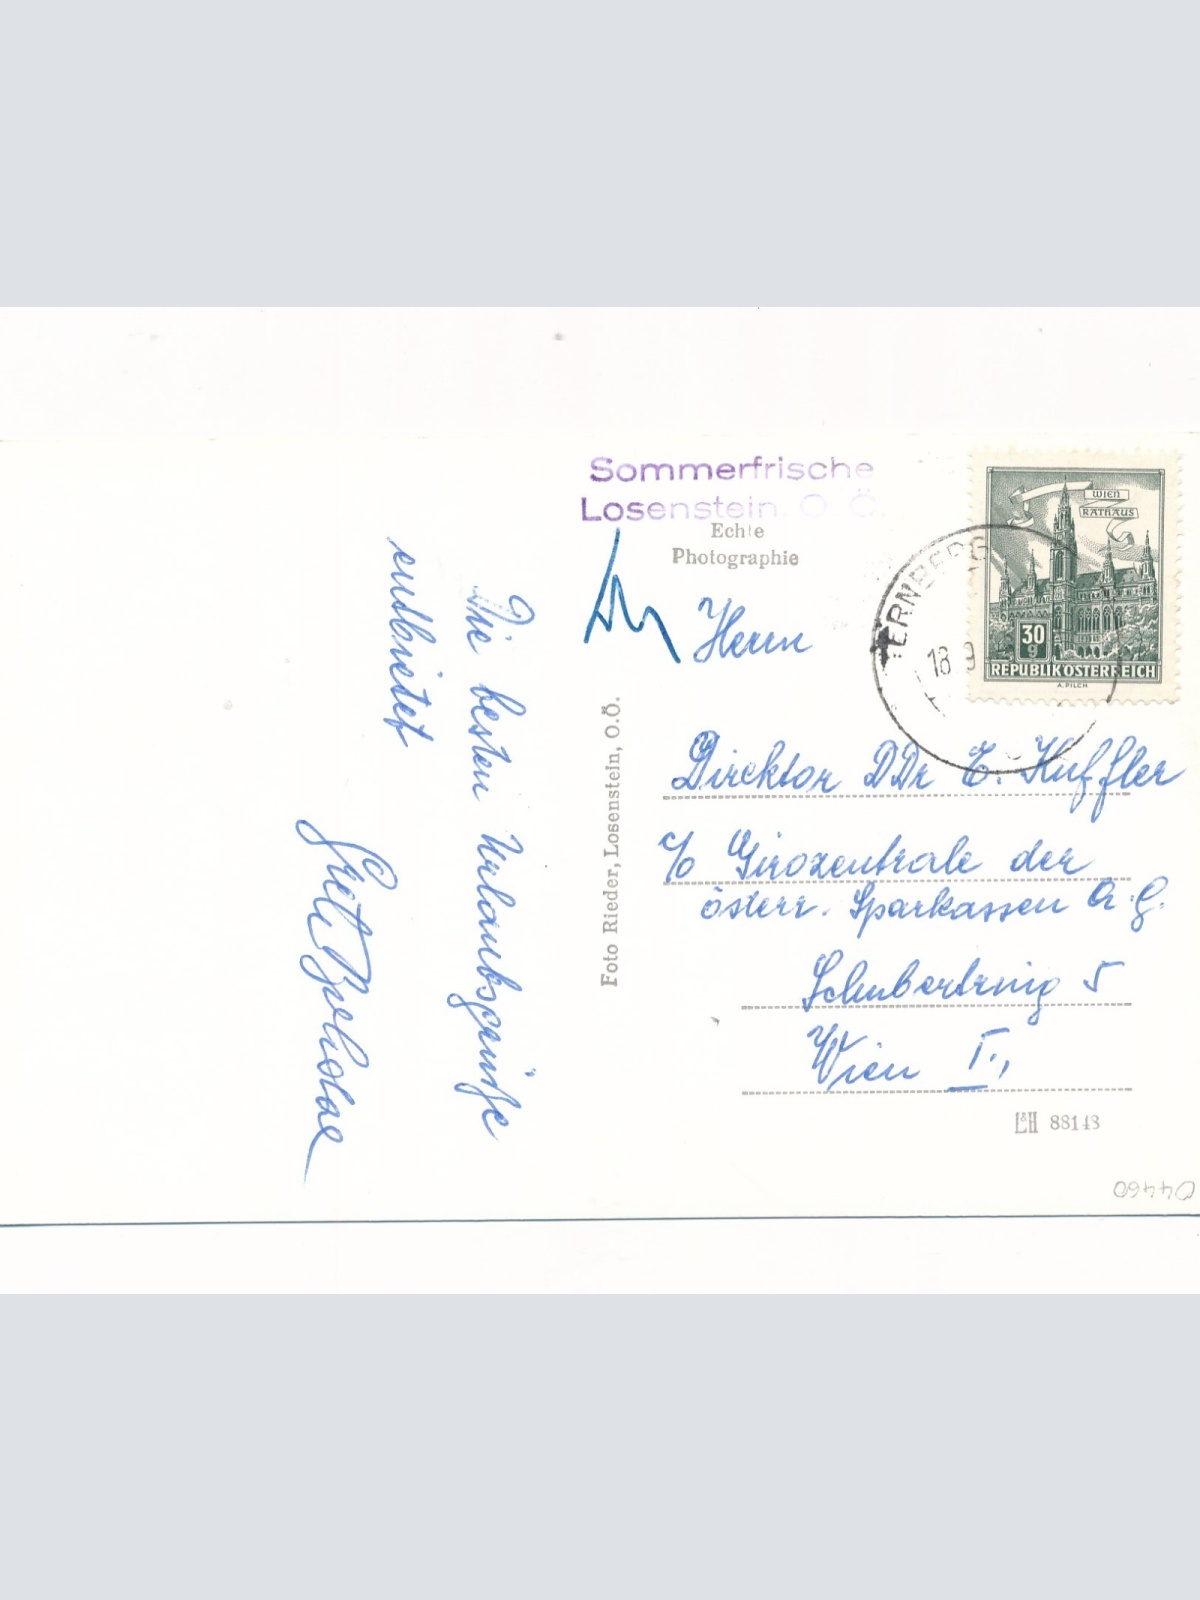 Sommerfrische
Losenstein, O. Ö.
Echte
Photographie
WIEN
RATHAUS
30
g
REPUBLIK ÖSTERREICH
A. PILCH
TERNBERG
18 9
Herrn
Direktor DDr E. Kuffler
c/o Girozentrale der
österr. Sparkassen A.G.
Schubertring 5
Wien I.,
Die besten Urlaubsgrüße
entbietet
Foto Rieder, Losenstein, O.Ö.
L&H 88148
04460